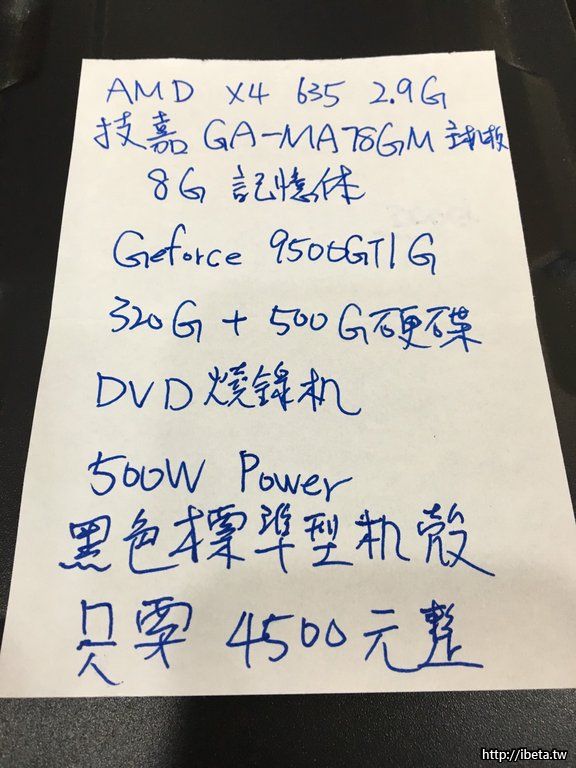 AMD X4 635 2.9G
技嘉 GA-MA78GM 主机板
8G 記憶体
Geforce 9500GT 1G
320G + 500G 硬碟
DVD 燒錄机
500W Power
黑色標準型机殼
只要 4500元整
http://ibeta.tw